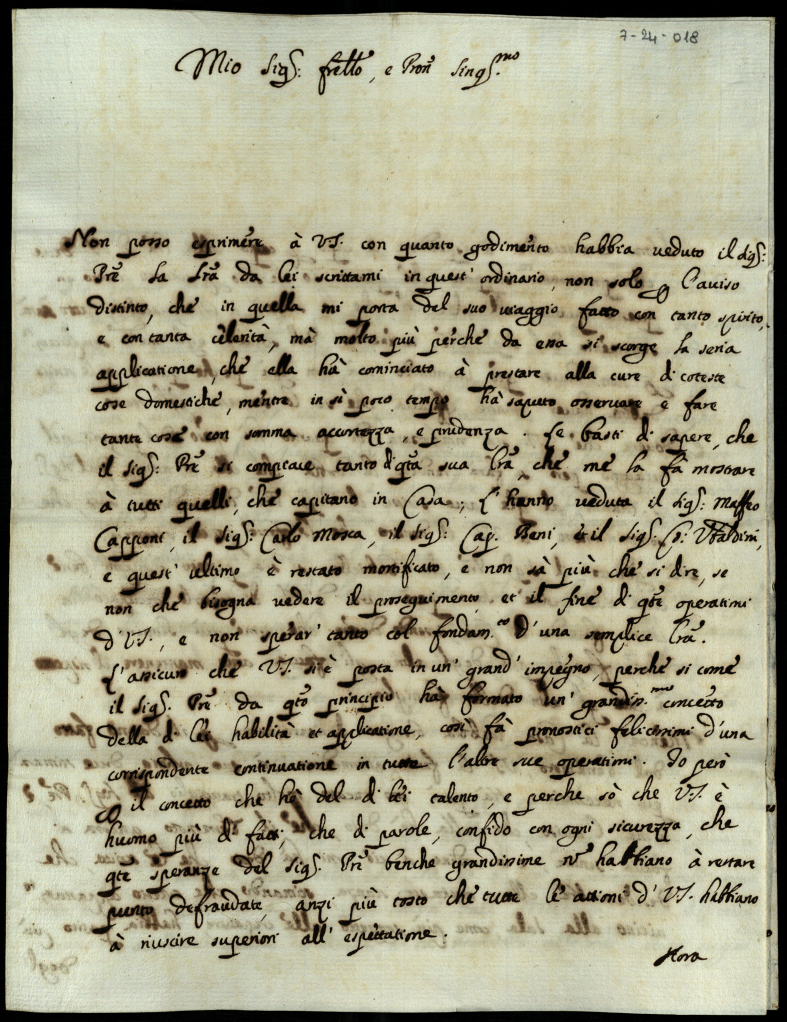 7-24-018
Mio Sig:r frello, e Pron Sing.mo
Non posso esprimere à VS. con quanto godimento habbia veduto il Sig:r
Prē la Lrā da lei scrittami in quest' ordinario, non solo p l'auiso
distinto, che in quella mi porta del suo uiaggio fatto con tanto spirito,
e con tanta celerità, mà molto più perche da essa si scorge la seria
applicatione, che ella hà cominciato à prestare alla cure di coteste
cose domestiche, mentre in sì poco tempo hà saputo osseruare e fare
tante cose con somma accortezza, e prudenza. Le basti di sapere, che
il Sig:r Prē si compiace tanto di qta sua Lrā, che me la fà mostrare
à tutti quelli, che capitano in Casa; L'hanno veduta il Sig:r Maffeo
Capponi, il Sig:r Carlo Mosca, il Sig:r Cap. Beni, et il Sig:r Co: Vbaldini,
e quest' ultimo è restato mortificato, e non sà più che si dire, se
non che bisogna vedere il proseguimento et il fine di qte operationi
d'VS., e non sperar' tanto col fondam.to d'una semplice Lrā.
L'assicuro che VS. si è posta in un' grand' impegno, perche si come
il Sig.r Prē da qto principio hà formato un' grandiss.mo concetto
della di lei habilità et applicatione, così fà pronostici felicissimi d'una
corrispondente continuatione in tutte l'altre sue operationi. Io però
p il concetto che hò del di lei talento, e perche sò che VS. è
huomo più di fatti, che di parole, confido con ogni sicurezza, che
qte speranze del Sig.r Prē benche grandissime nō habbiano à restare
punto defraudate, anzi più tosto che tutte le attioni d'VS. habbiano
à riuscire superiori all' espettatione.
Hora